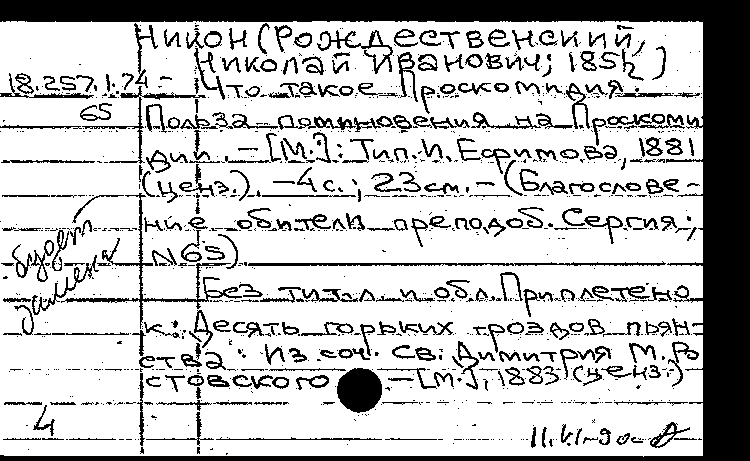 Никон (Рождественский,
Николай Иванович; 1851-)
18.257.1.74- Что такое Проскомидия.
65 Польза поминовения на Проскоми
дии. - [М.]: Тип. И. Ефимова, 1881
(ценз.). - 4 с.; 23 см. - (Благослове-
ние обители преподоб. Сергия;
N65).
будет замена
Без тит. л и обл. Приплетено
к: Десять горьких гроздов пьян-
ства: Из соч. Св. Димитрия М. Ро
стовского. - [М.], 1883 (ценз.)
4
11.VI-90-